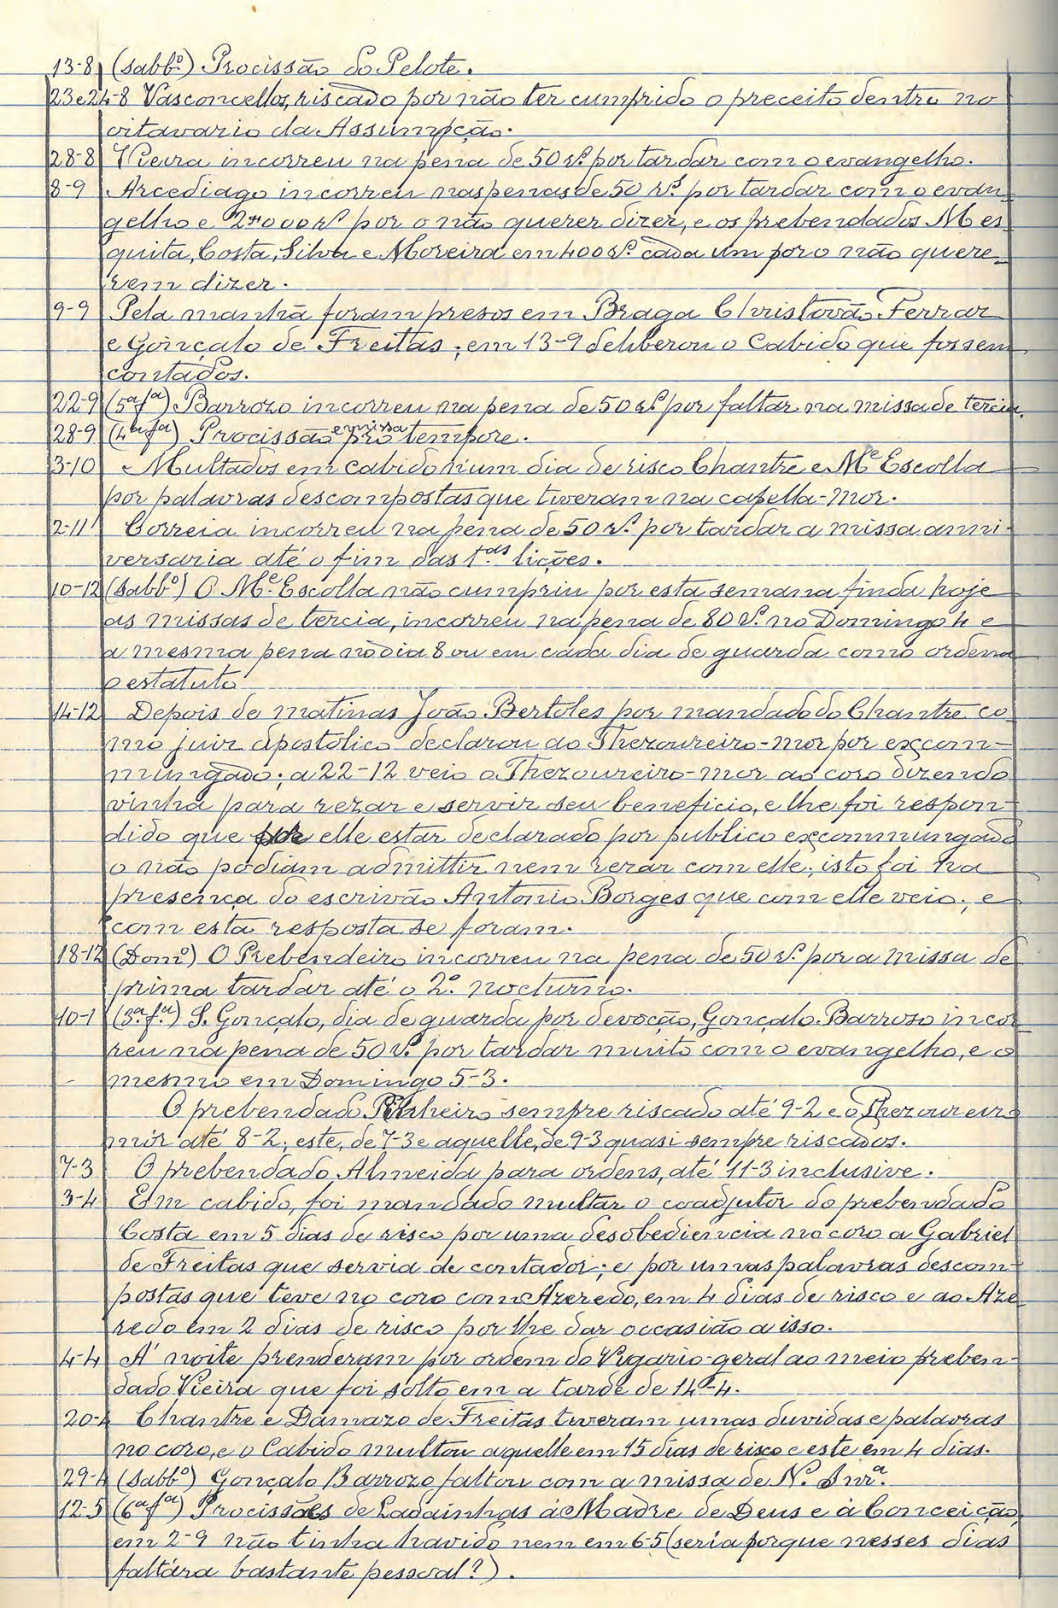 13-8 (sabb.º) Procissão do Pelote.
23 e 24-8 Vasconcellos, riscado por não ter cumprido o preceito dentro no
oitavario da Assumpção.
28-8 Vieira incorreu na pena de 50 rs. por tardar com o evangelho.
8-9 Arcediago incorreu nas penas de 50 rs. por tardar com o evan-
gelho e 2$000 rs. por o não querer dizer, e os prebendados Mes-
quita, Costa, Silva e Moreira em 400 rs. cada um por o não quere-
rem dizer.
9-9 Pela manhã foram presos em Braga Christovão Ferraz
e Gonçalo de Freitas; em 13-9 deliberou o Cabido que fossem
contados.
22-9 (5ª fª) Barrozo incorreu na pena de 50 rs. por faltar na missa de tercia.
28-9 (4ª fª) Procissão e missa pro tempore.
3-10 Multados em cabido n'um dia de risco Chantre e Me Escolla
por palavras descompostas que tiveram na capella-mor.
2-11 Correia incorreu na pena de 50 rs. por tardar a missa anni-
versaria até o fim das 1.as lições.
10-12 (sabb.º) O Me. Escolla não cumpriu por esta semana finda hoje
as missas de tercia, incorreu na pena de 80 rs. no Domingo 4 e
a mesma pena no dia 8 ou em cada dia de guarda como ordena
o estatuto
14-12 Depois de matinas João Bertoles por mandado do Chantre co-
mo juiz apostolico declarou ao Thezoureiro-mor por excom-
mungado; a 22-12 veio o Thezoureiro-mor ao coro dizendo
vinha para rezar e servir seu beneficio, e lhe foi respon-
dido que por elle estar declarado por publico excommungado
o não podiam admittir nem rezar com elle; isto foi na
presença do escrivão Antonio Borges que com elle veio; e
com esta resposta se foram.
18-12 (Dom.º) O Prebendeiro incorreu na pena de 50 rs. por a missa de
prima tardar até o 2.º nocturno.
10-1 (3ª.fª.) S. Gonçalo, dia de guarda por devoção, Gonçalo Barroso incor-
reu na pena de 50 rs. por tardar muito com o evangelho, e o
mesmo em Domingo 5-3.
O prebendado Pinheiro sempre riscado até 9-2 e o Thezoureiro
mór até 8-2; este, de 7-3 e aquelle, de 9-3 quasi sempre riscados.
7-3 O prebendado Almeida para ordens, até 11-3 inclusive.
3-4 Em cabido, foi mandado multar o coadjutor do prebendado
Costa em 5 dias de risco por uma desobediencia no coro a Gabriel
de Freitas que servia de contador; e por umas palavras descom-
postas que teve no coro com Azeredo, em 4 dias de risco e ao Aze-
redo em 2 dias de risco por lhe dar occasião a isso.
4-4 Á noite prenderam por ordem do Vigario-geral ao meio preben-
dado Vieira que foi solto em a tarde de 14-4.
20-4 Chantre e Damazo de Freitas tiveram umas duvidas e palavras
no coro, e o Cabido multou aquelle em 15 dias de risco e este em 4 dias.
29-4 (Sabb.º) Gonçalo Barrozo faltou com a missa de N.º Snrª.
12-5 (6ª fª) Procissões de Ladainhas á Madre de Deus e á Conceição,
em 2-9 não tinha havido nem em 6-5 (seria porque nesses dias
faltára bastante pessoal?).